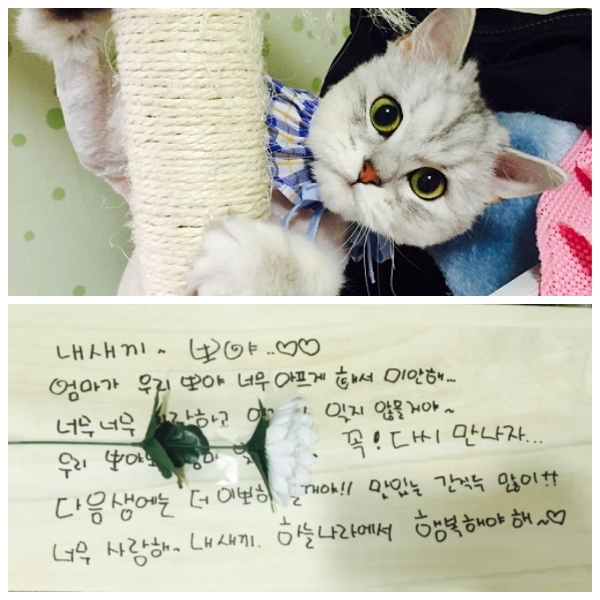 내새끼~ 뽀야..♡♡
엄마가 우리 뽀야 너무 아프게 해서 미안해...
너무너무 사랑하고 잊지 않을게야~
우리 뽀야도 엄마 꼭! 다시 만나자...
다음생에는 더 이뻐해 줄게야!! 맛있는 간식두 많이!!
너무 사랑해~ 내새끼. 하늘나라에서 행복해야 해~♡